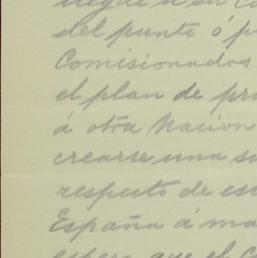 llegue á su co
del punto ó p
Comisionados
el plan de pr
á otra Nacion
crearse una s
respecto de es
España á ma
espero que el C